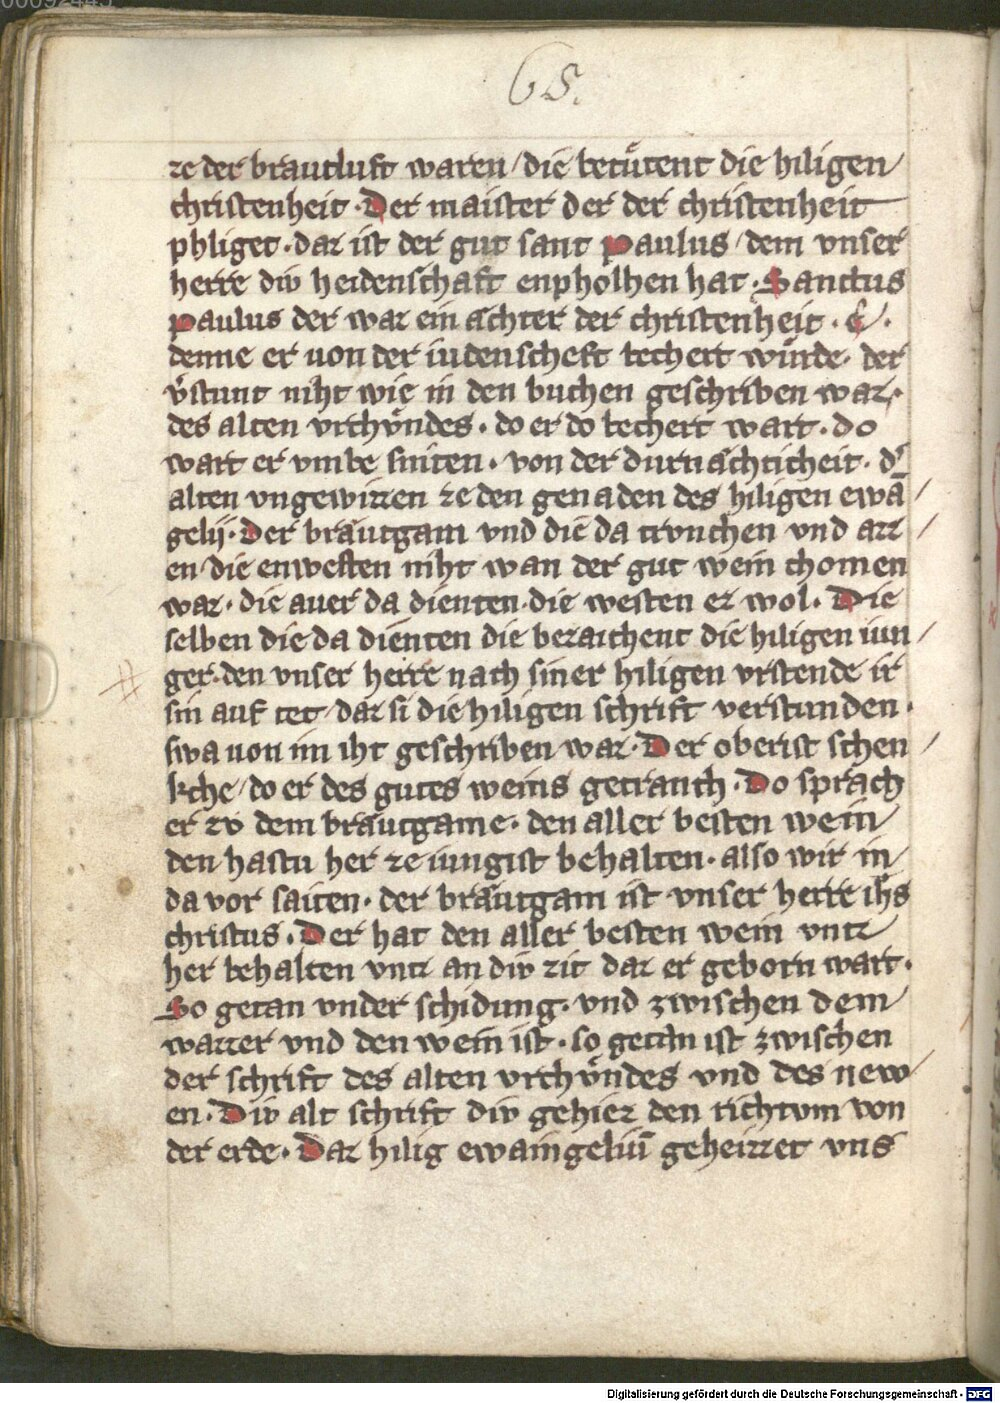 65.
ze der brautluft waren / die betůtent die hiligen /
christenheit · Der maister der der christenheit
phliget · daz ist der gut sant paulus / dem vnser
herre div heidenschaft enpholhen hat · Sanctus
paulus der waz ein æchter der christenheit · E ·
denne er uon der iudenscheft bechert wůrde · der
v̓stunt niht wie in den buchen geschriben waz ·
des alten vrchůndes · do er do bechert wart · do
wart er vmbe sniten · von der durnæchticheit · d̓
alten vngewizzen ze den genaden des hiligen ewā /
gelij · Der bräutgam vnd die da trvnchen vnd azz /
en / die enwesten niht wan der gut wein chomen
waz · die auer da dienten · die westen ez wol · Die
selben die da dienten die bezaichent die hiligen iun /
ger · den vnser herre nach siner hiligen vrstende ir
sin auf tet / daz si die hiligen schrift verstunden ·
swa uon im iht geschriben waz · Der oberist schen /
kche / do er des gutes weins getranch · Do sprach
er zv dem bräutgame · den aller besten wein /
den hastu her ze iungist behalten · also wir in /
da vor saiten · der bräutgam ist vnser herre ihs
christus · Der hat den aller besten wein vntz /
her behalten vntz an div zit daz er geborn wart ·
So getan vnder schidung · vnd zwischen dem /
wazzer vnd den wein ist · so getan ist zwischen
der schrift des alten vrchůndes vnd des new /
en · Div alt schrift div gehiez den richtvm von
der erde · Daz hilig ewaingeliū geheizzet vns
Digitalisierung gefördert durch die Deutsche Forschungsgemeinschaft - DFG